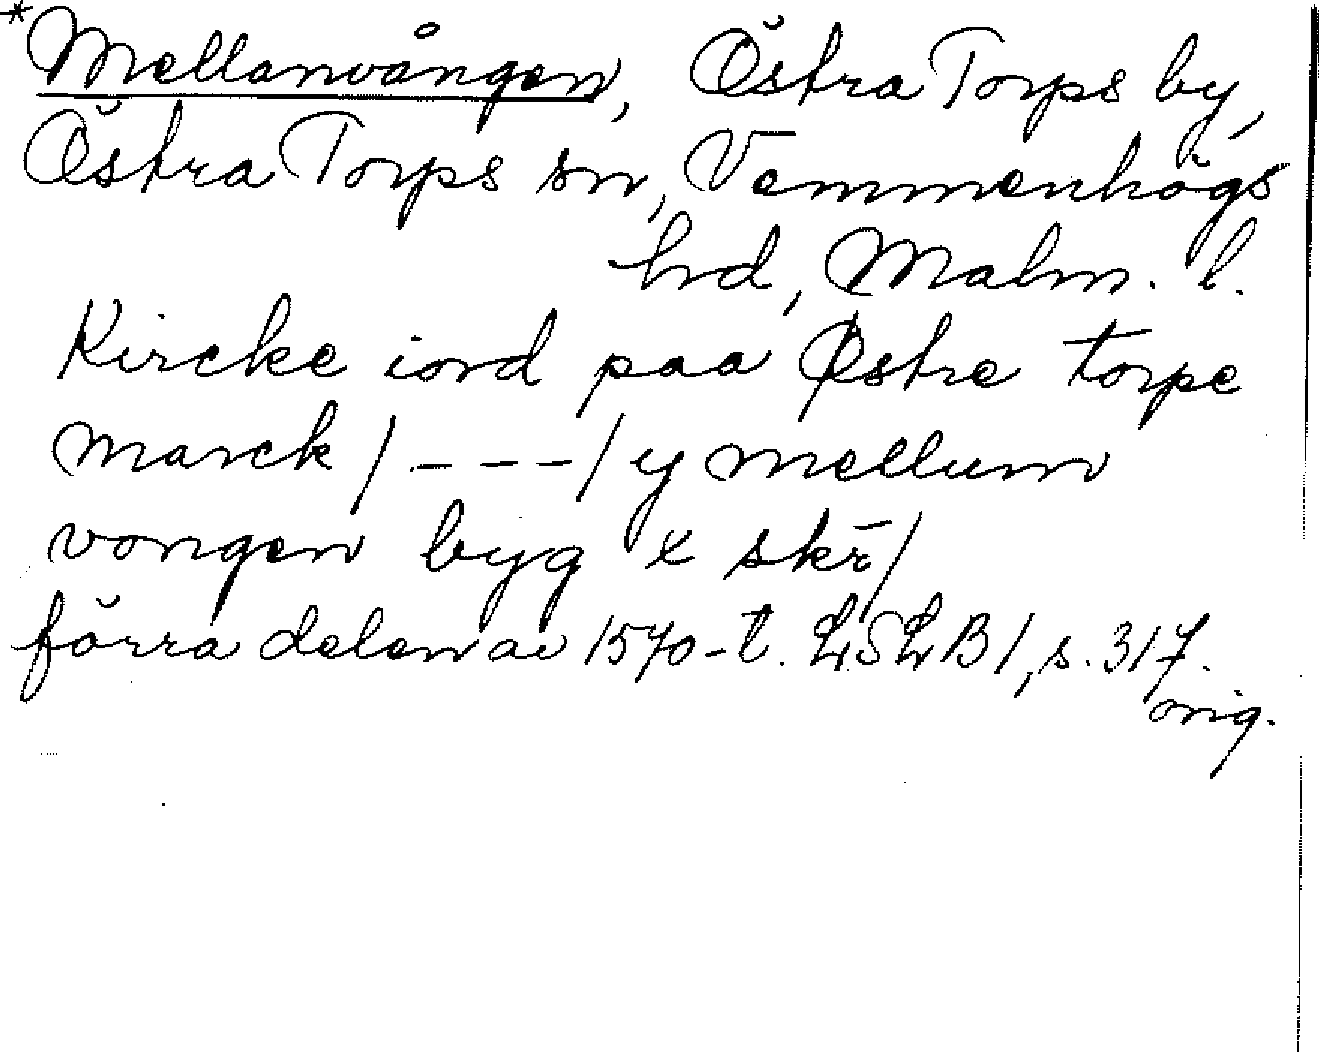 *Mellanvången, Östra Torps by,
Östra Torps sn, Vemmenhögs
hd, Malm. l.
Kircke iord paa Østre torpe
marck /---/ y mellum
vongen byg x skr̄/
förra delen av 1570-t. LSLB1, s. 317.
orig.